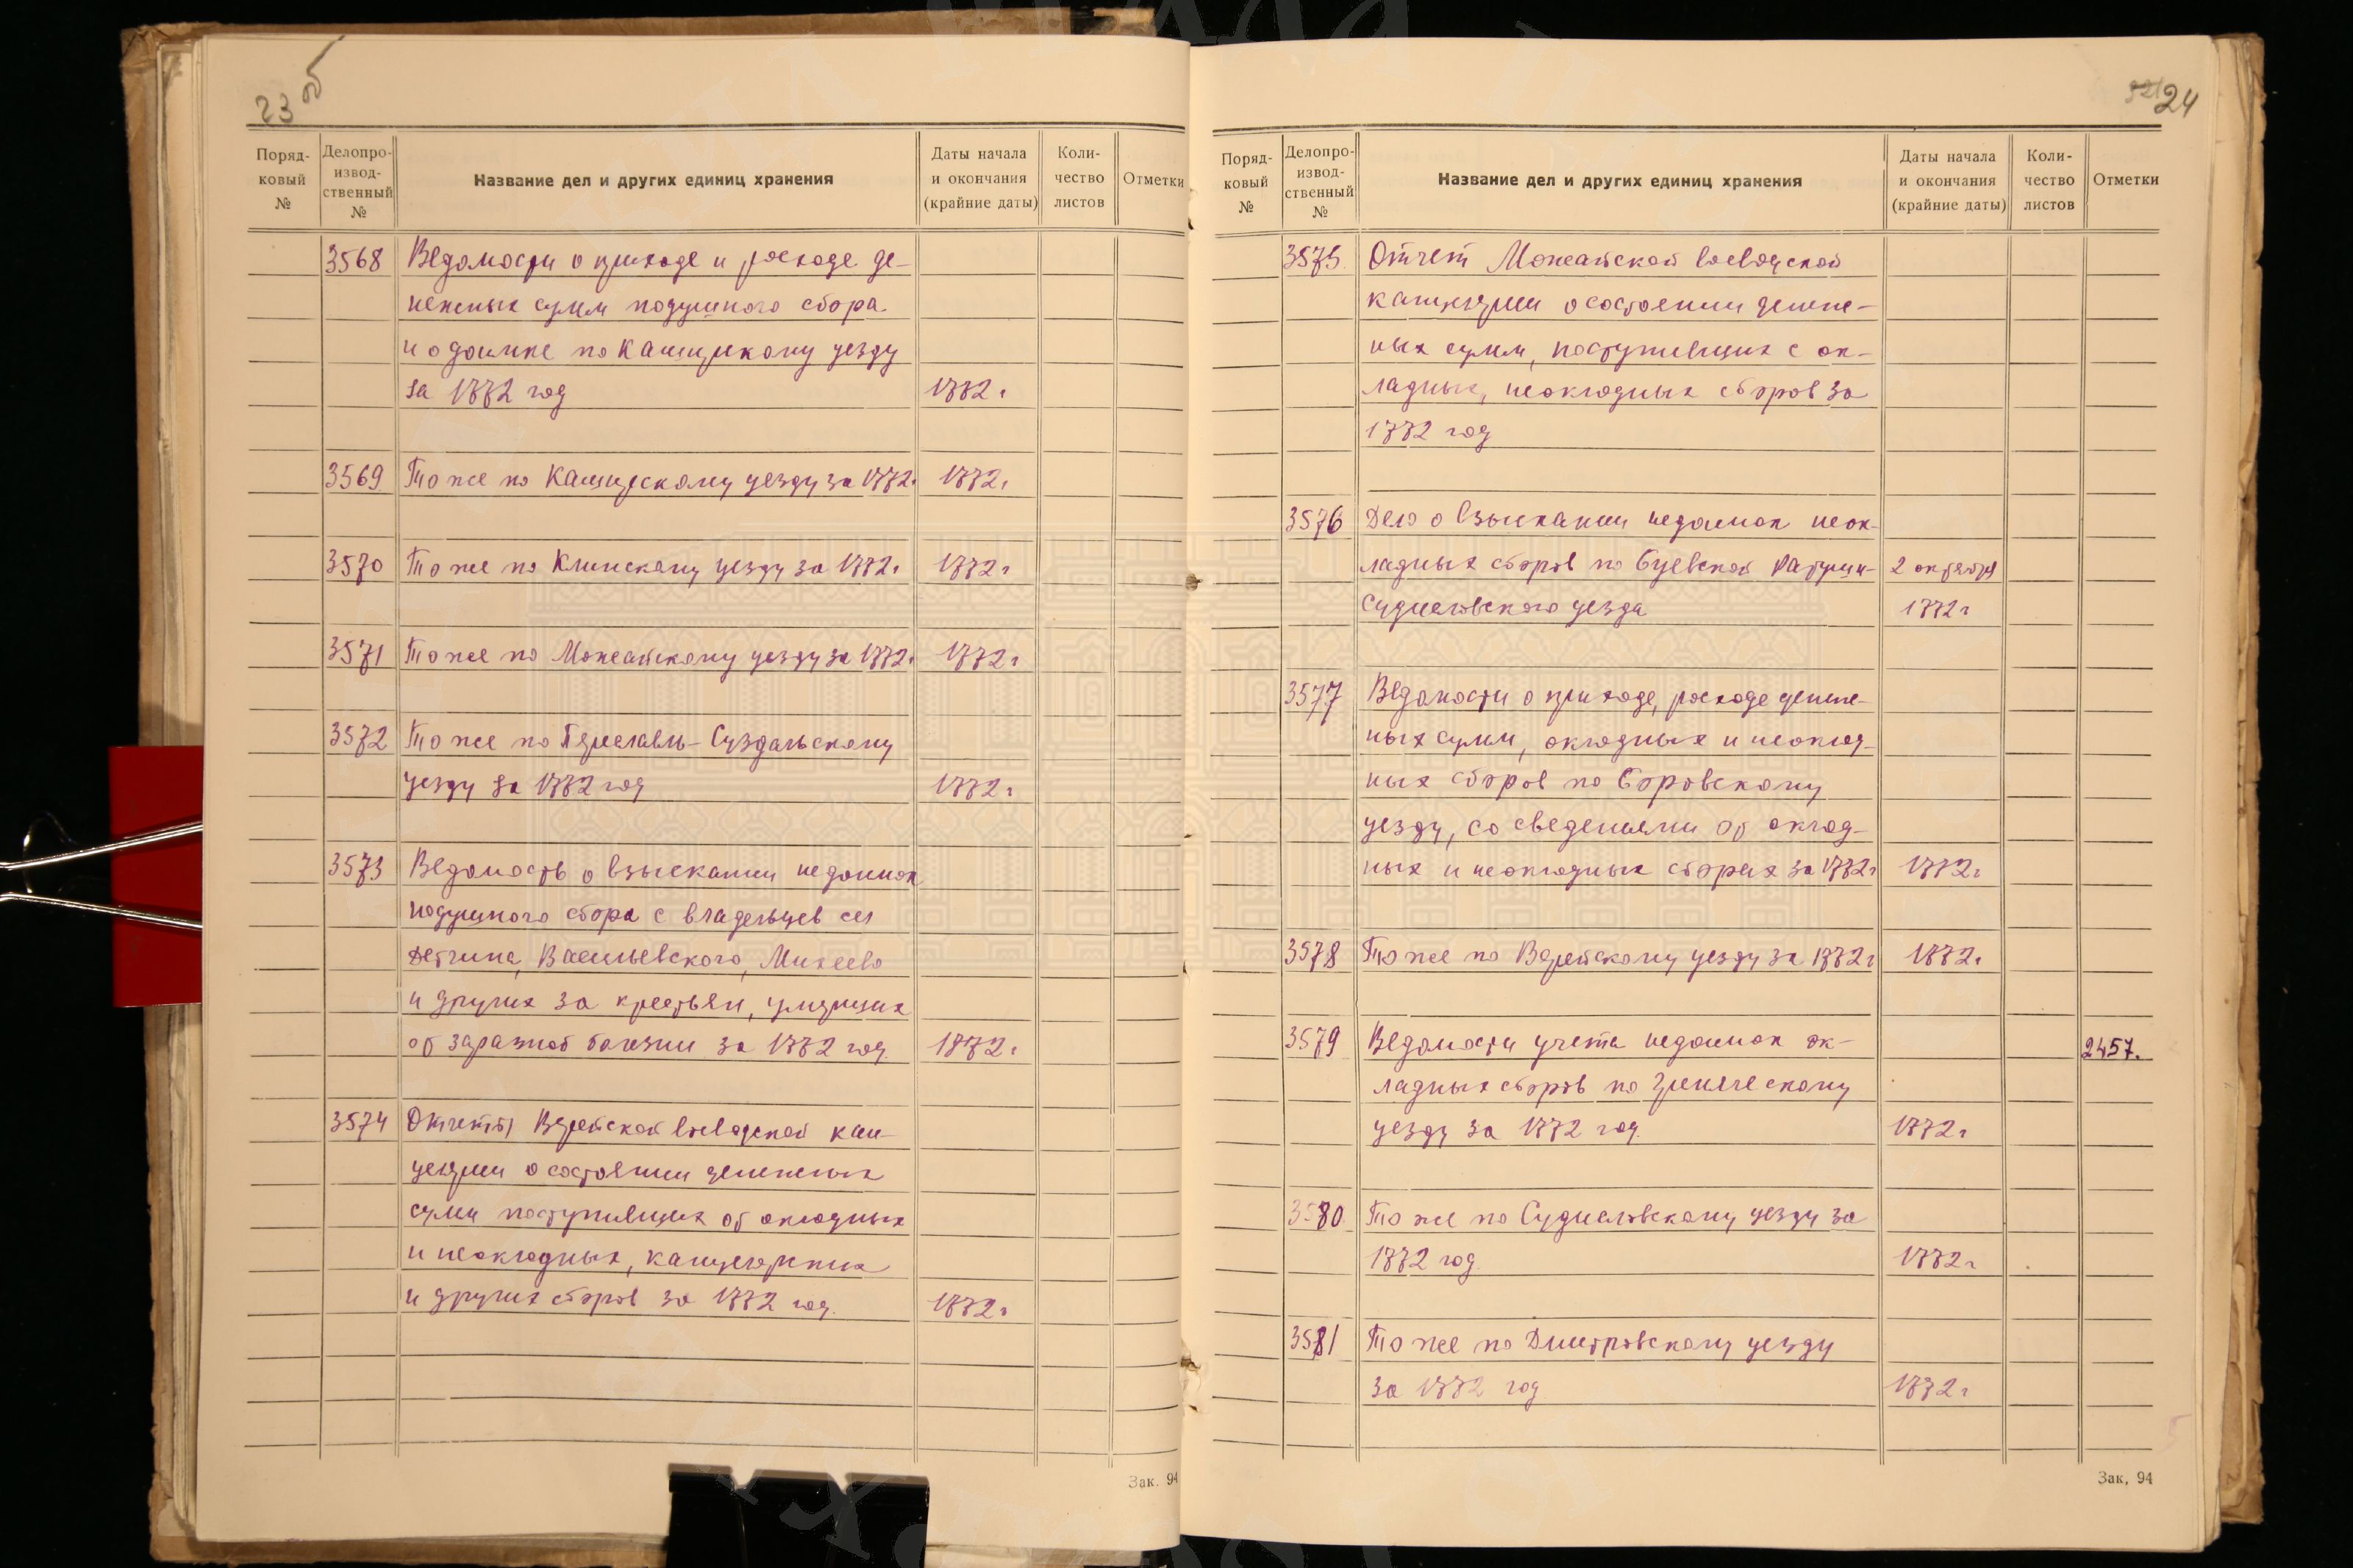 23 об
Поряд-
ковый
№
Делопро-
извод-
ственный
№
Название дел и других единиц хранения
Даты начала
и окончания
(крайние даты)
Коли-
чество
листов
Отметки
3568 Ведомости о приходе и расходе де-
нежных сумм подушного сбора
и о доимке по Каширскому уезду
за 1772 год 1772 г
3569 То же по Каширскому уезду за 1772 г 1772 г
3570 То же по Клинскому уезду за 1772 г 1772 г
3571 То же по Можайскому уезду за 1772 г 1772 г
3572 То же по Переславль-Суздальскому
уезду за 1772 год 1772 г
3573 Ведомость о взыскании недоимок
подушного сбора с владельцев сел
Детчина, Васильевского, Михеево
и других за крестьян, умерших
от заразной болезни за 1772 год. 1772 г
3574 Отчеты Верейской воеводской кан-
целярии о состоянии денежных
сумм поступивших от окладных
и неокладных, канцелярских
и других сборов за 1772 год. 1772 г
Зак. 94
24
Поряд-
ковый
№
Делопро-
извод-
ственный
№
Название дел и других единиц хранения
Даты начала
и окончания
(крайние даты)
Коли-
чество
листов
Отметки
3575 Отчет Можайской воеводской
канцелярии о состоянии денеж-
ных сумм, поступивших с ок-
ладных, неокладных сборов за
1772 год
3576 Дело о взыскании недоимок неок-
ладных сборов по Буевской ратуши- 2 октября
Судиславского уезда 1772 г
3577 Ведомости о приходе, расходе денеж-
ных сумм, окладных и неоклад-
ных сборов по Боровскому
уезду, со сведениями об оклад-
ных и неокладных сборах за 1772 г 1772 г
3578 То же по Верейскому уезду за 1772 г 1772 г
3579 Ведомости учета недоимок ок- 2457.
ладных сборов по
уезду за 1772 год. 1772 г
3580 То же по Судиславскому уезду за
1772 год. 1772 г
3581 То же по Дмитровскому уезду
за 1772 год 1772 г
Зак, 94